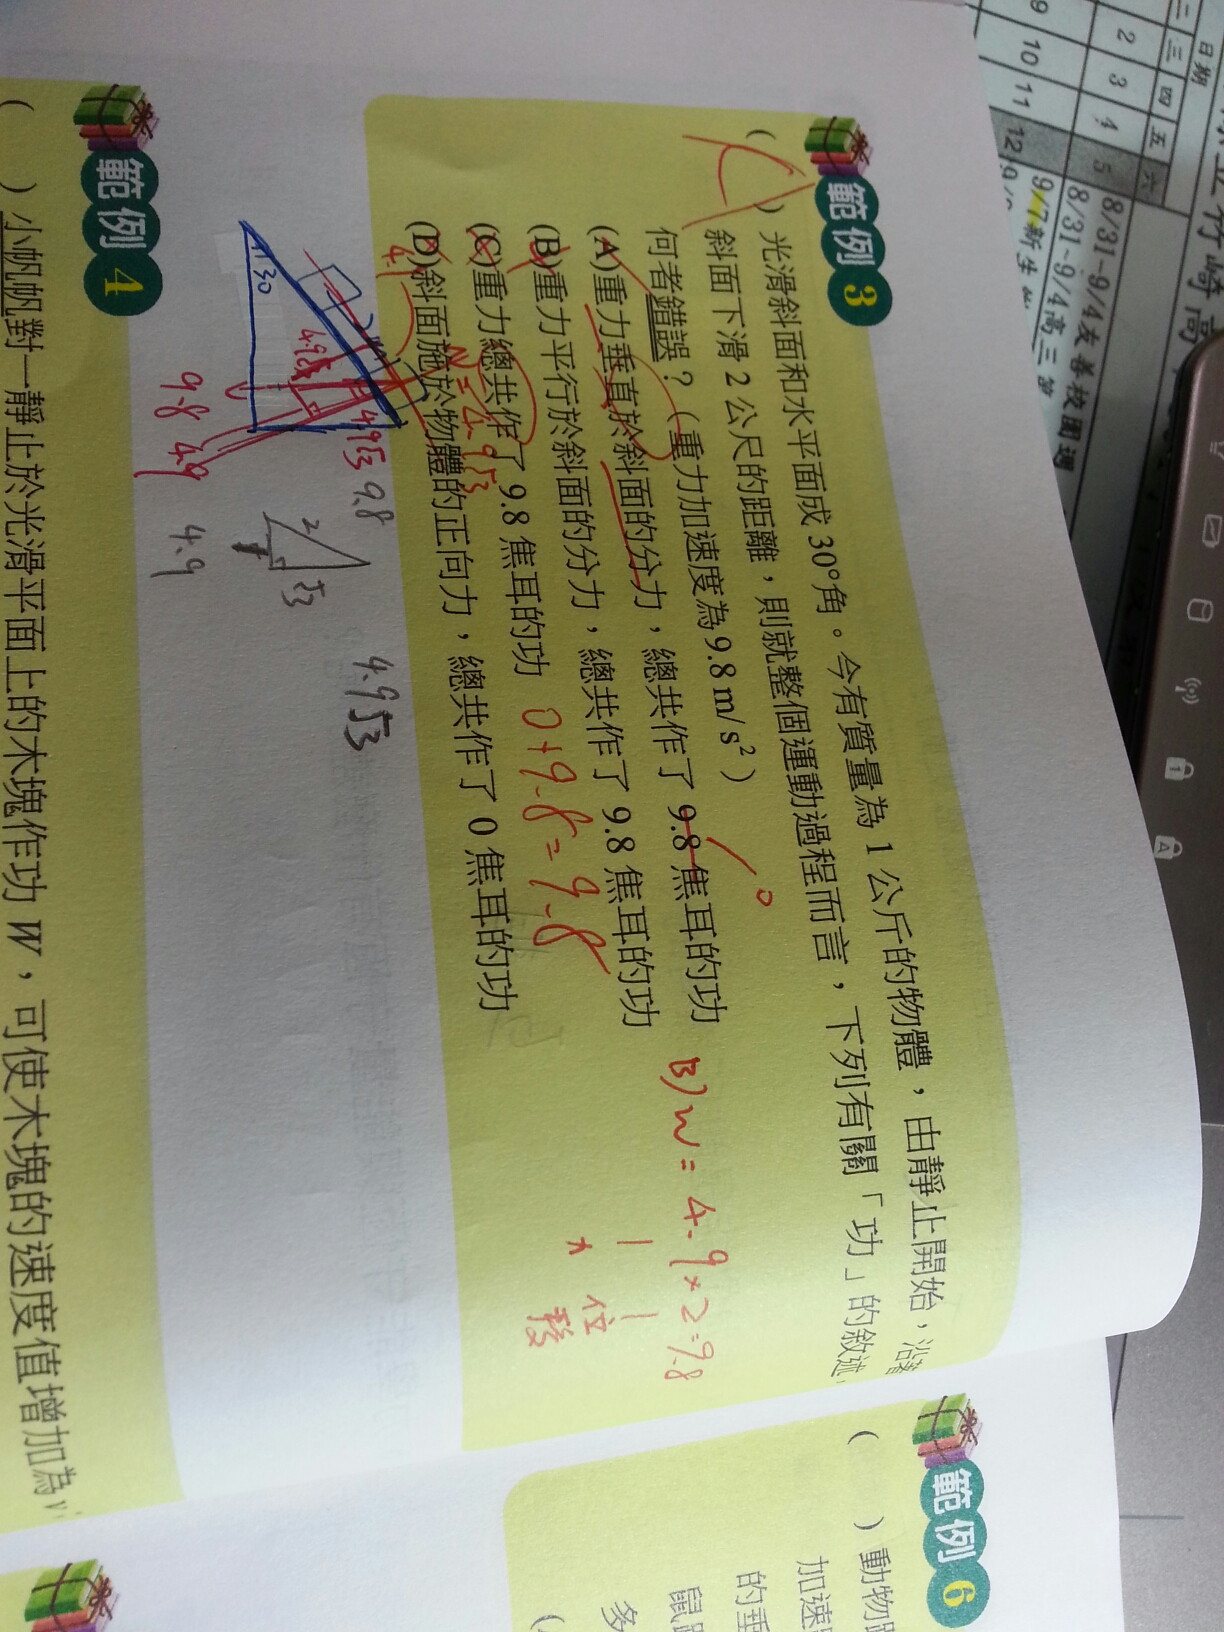 範例 3
( ) 光滑斜面和水平面成 30°角。今有質量為 1 公斤的物體，由靜止開始，沿著
斜面下滑 2 公尺的距離，則就整個運動過程而言，下列有關「功」的敘述，
何者錯誤？（重力加速度為 9.8 m/s²）
(A)重力垂直於斜面的分力，總共作了 9.8 焦耳的功
(B)重力平行於斜面的分力，總共作了 9.8 焦耳的功
(C)重力總共作了 9.8 焦耳的功
(D)斜面施於物體的正向力，總共作了 0 焦耳的功
0
B) W = 4.9×2=9.8
力 位移
0+9.8=9.8
N=4.9√3
30
4.9√3
4.9√3
9.8
9.8 4.9
2
√3
4.9
4.9√3
範例 4
( ) 小帆帆對一靜止於光滑平面上的木塊作功 W，可使木塊的速度值增加為 v
範例 6
( ) 動物
加速
的
鼠
多
(
日期
二 三 四 五 六
2 3 4 5
9 10 11 12
8/31~9/4友善校園週
8/31~9/4高三第
9/7新生
竹崎高